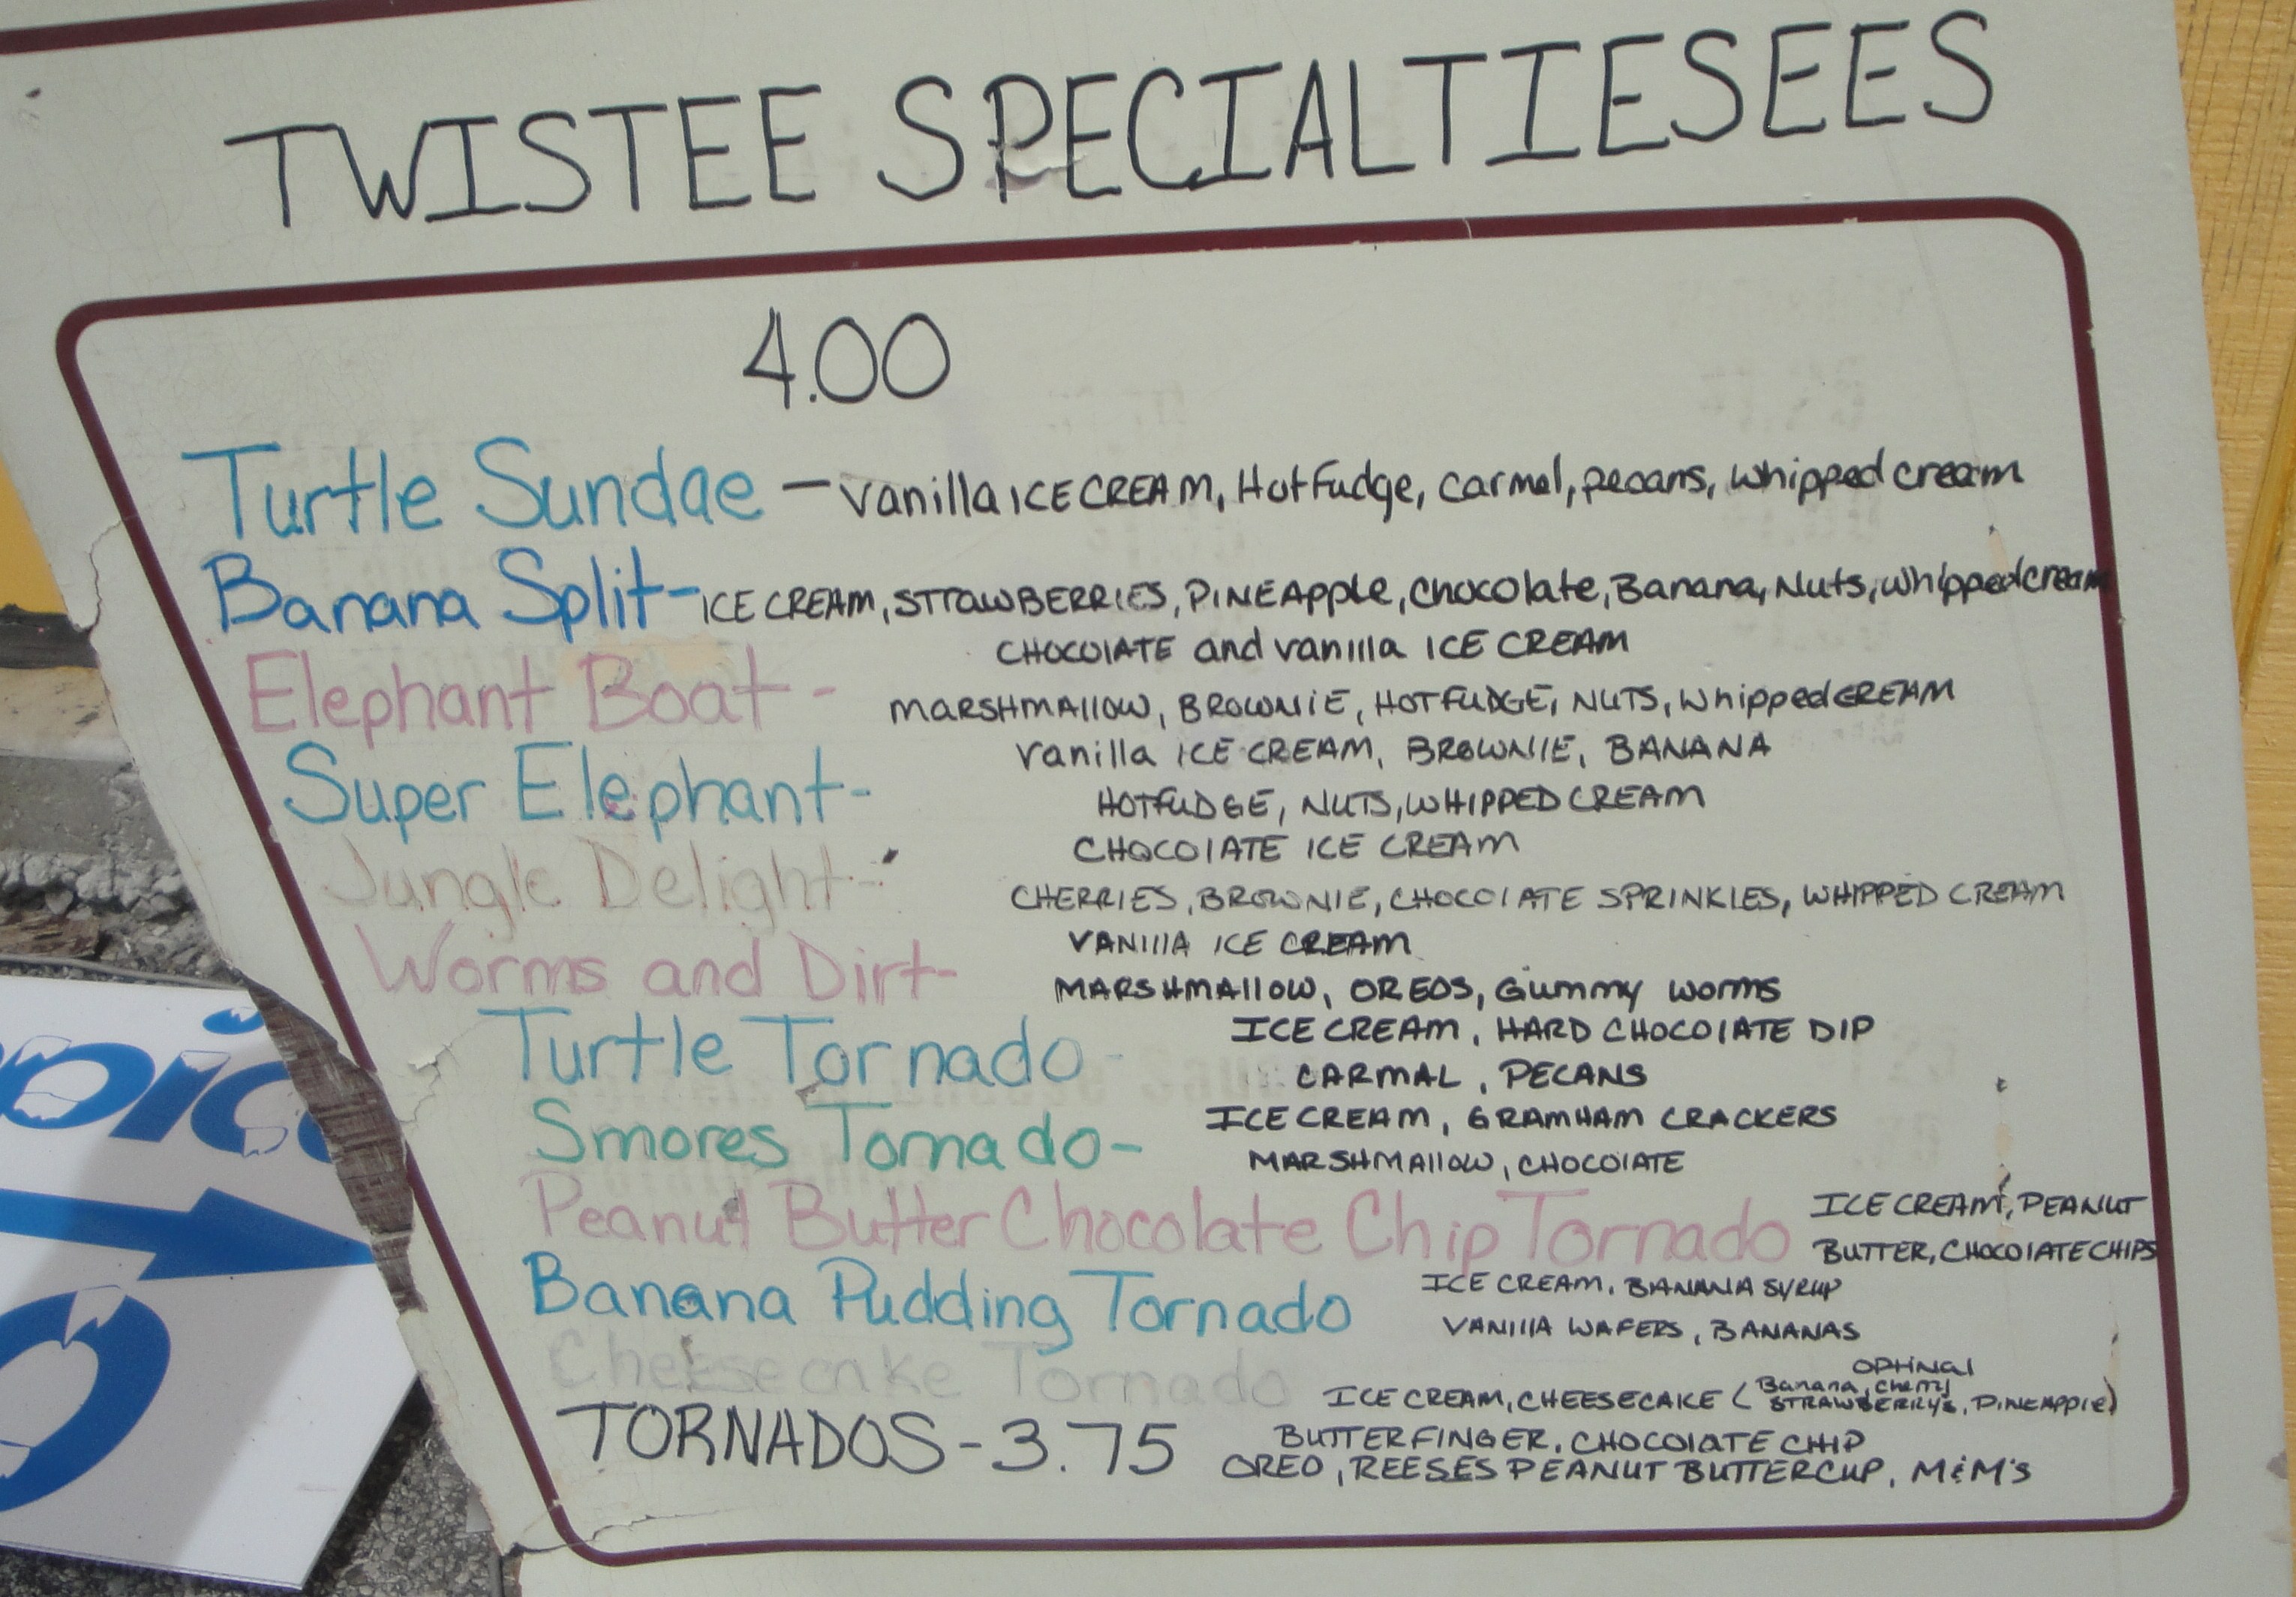 TWISTEE SPECIALTIESEES
4.00
Turtle Sundae - vanilla ICE CREAM, Hot Fudge, carmel, pecans, whipped cream
Banana Split - ICE CREAM, STRAWBERRIES, PINEApple, chocolate, Banana, Nuts, whipped cream
CHOCOlATE and vanilla ICE CREAM
Elephant Boat - MARSHMAllOW, BROWNIE, HOT FUDGE, NUTS, Whipped CREAM
Vanilla ICE CREAM, BROWNIE, BANANA
Super Elephant - HOTFUDGE, NUTS, WHIPPED CREAM
CHOCOlATE ICE CREAM
Jungle Delight - CHERRIES, BROWNIE, CHOCOlATE SPRINKlES, WHIPPED CREAM
VANIllA ICE CREAM
Worms and Dirt - MARSHMAllOW, OREOS, Gummy worms
ICE CREAM, HARD CHOCOlATE DIP
Turtle Tornado - CARMAL, PECANS
ICE CREAM, GRAMHAM CRACKERS
Smores Tornado - MARSHMAllOW, CHOCOlATE
Peanut Butter Chocolate Chip Tornado ICE CREAM, PEANUT
BUTTER, CHOCOlATE CHIPS
Banana Pudding Tornado ICE CREAM, BANANA SYRUP
VANIllA WAFERS, BANANAS
OPtiNal
Cheesecake Tornado ICE CREAM, CHEESECAKE (Banana, cherry
STRAWBERRYs, PiNEAPPlE)
TORNADOS - 3.75 BUTTERFINGER, CHOCOlATE CHIP
OREO, REESES PEANUT BUTTERCUP, M&M's